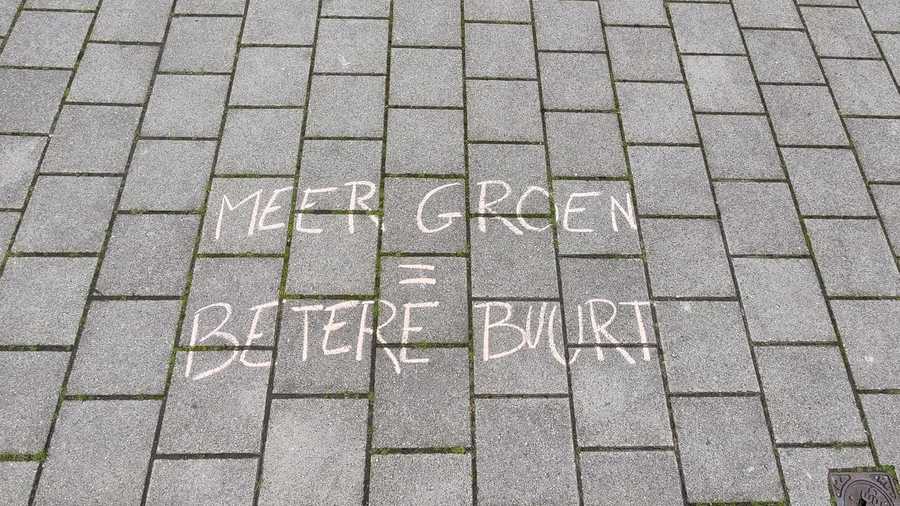 MEER GROEN
=
BETERE BUURT